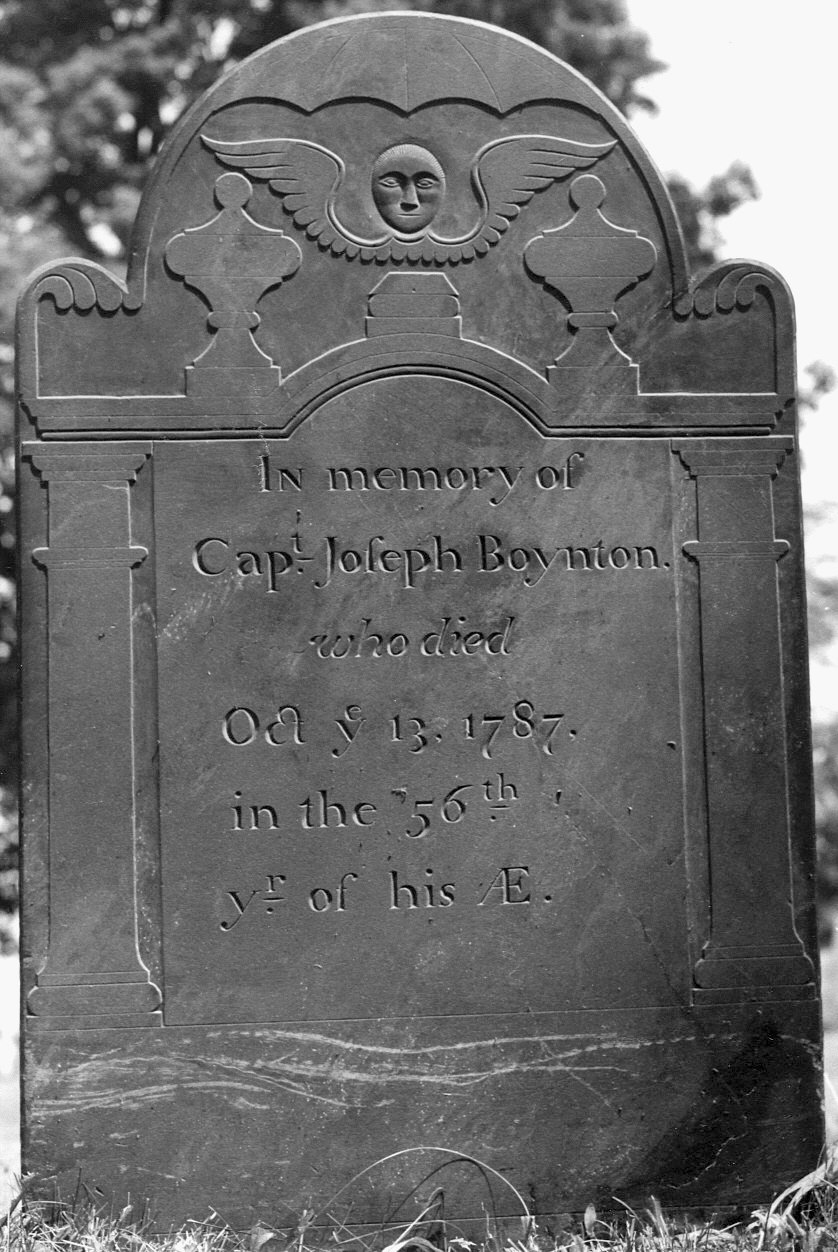 In memory of
Capt. Joſeph Boynton.
who died
Oct ye 13, 1787,
in the 56th
yr. of his Æ.